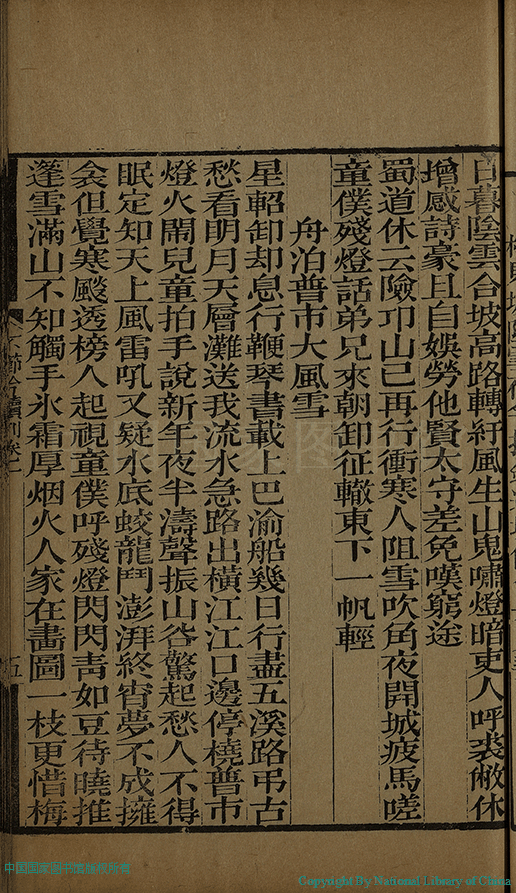 日暮陰雲合坡高路轉紆風生山鬼嘯燈暗吏人呼裘敝休
增感詩豪且自娛勞他賢太守差免嘆窮途
蜀道休云險邛山已再行衝寒人阻雪吹角夜開城疲馬嗟
童僕殘燈話弟兄來朝卸征轍東下一帆輕
舟泊普市大風雪
星軺卸却息行鞭琴書載上巴渝船幾日行盡五溪路弔古
愁看明月天層灘送我流水急路出橫江江口邊停橈普市
燈火閙兒童拍手說新年夜半濤聲振山谷驚起愁人不得
眠定知天上風雷吼又疑水底蛟龍鬥澎湃終宵夢不成擁
衾但覺寒颼透榜人起視童僕呼殘燈閃閃靑如豆待曉推
篷雪滿山不知觸手氷霜厚烟火人家在畵圖一枝更惜梅
五
Copyright By National Library of China